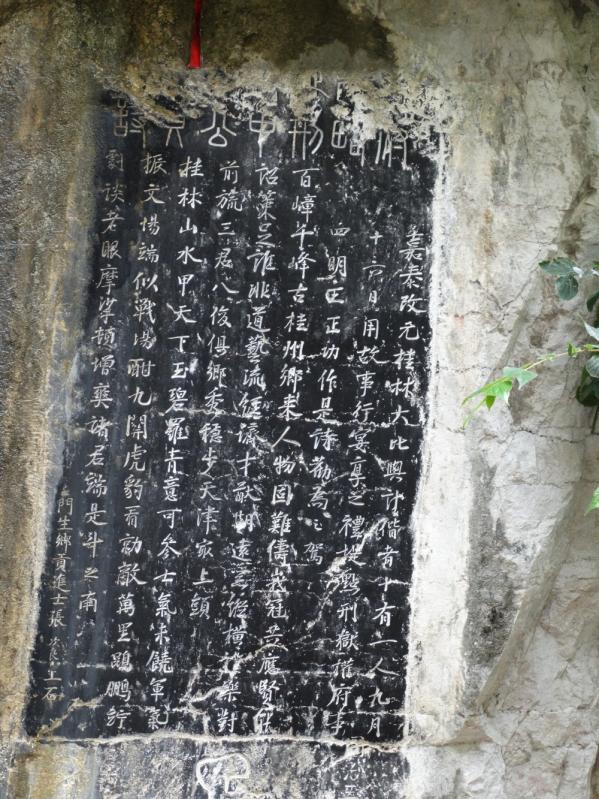 刑 公 詩
嘉泰改元桂林大比與計偕者十有一人九月
十六日用故事行宴享之禮提點刑獄權府事
四明王正功作是詩勸為之駕
百嶂千峰古桂州鄉來人物固難儔峨冠共應賢能
詔策足誰非道藝流經濟才猷期遠縱橫禮樂對
前旒三君八俊俱鄉秀穩步天津最上頭
桂林山水甲天下玉碧羅青意可參士氣未饒軍氣
振文場端似戰場酣九關虎豹看勍敵萬里鶤鵬佇
劇談老眼摩挲頓增爽諸君端是斗之南
門生鄉貢進士張次良上石